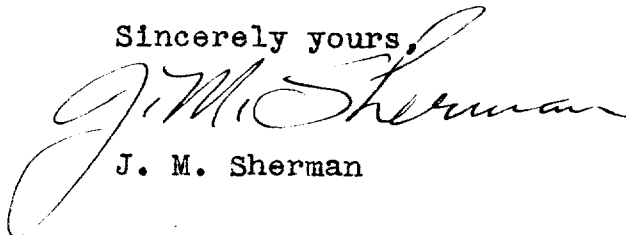 Sincerely yours,
J. M. Sherman
J. M. Sherman